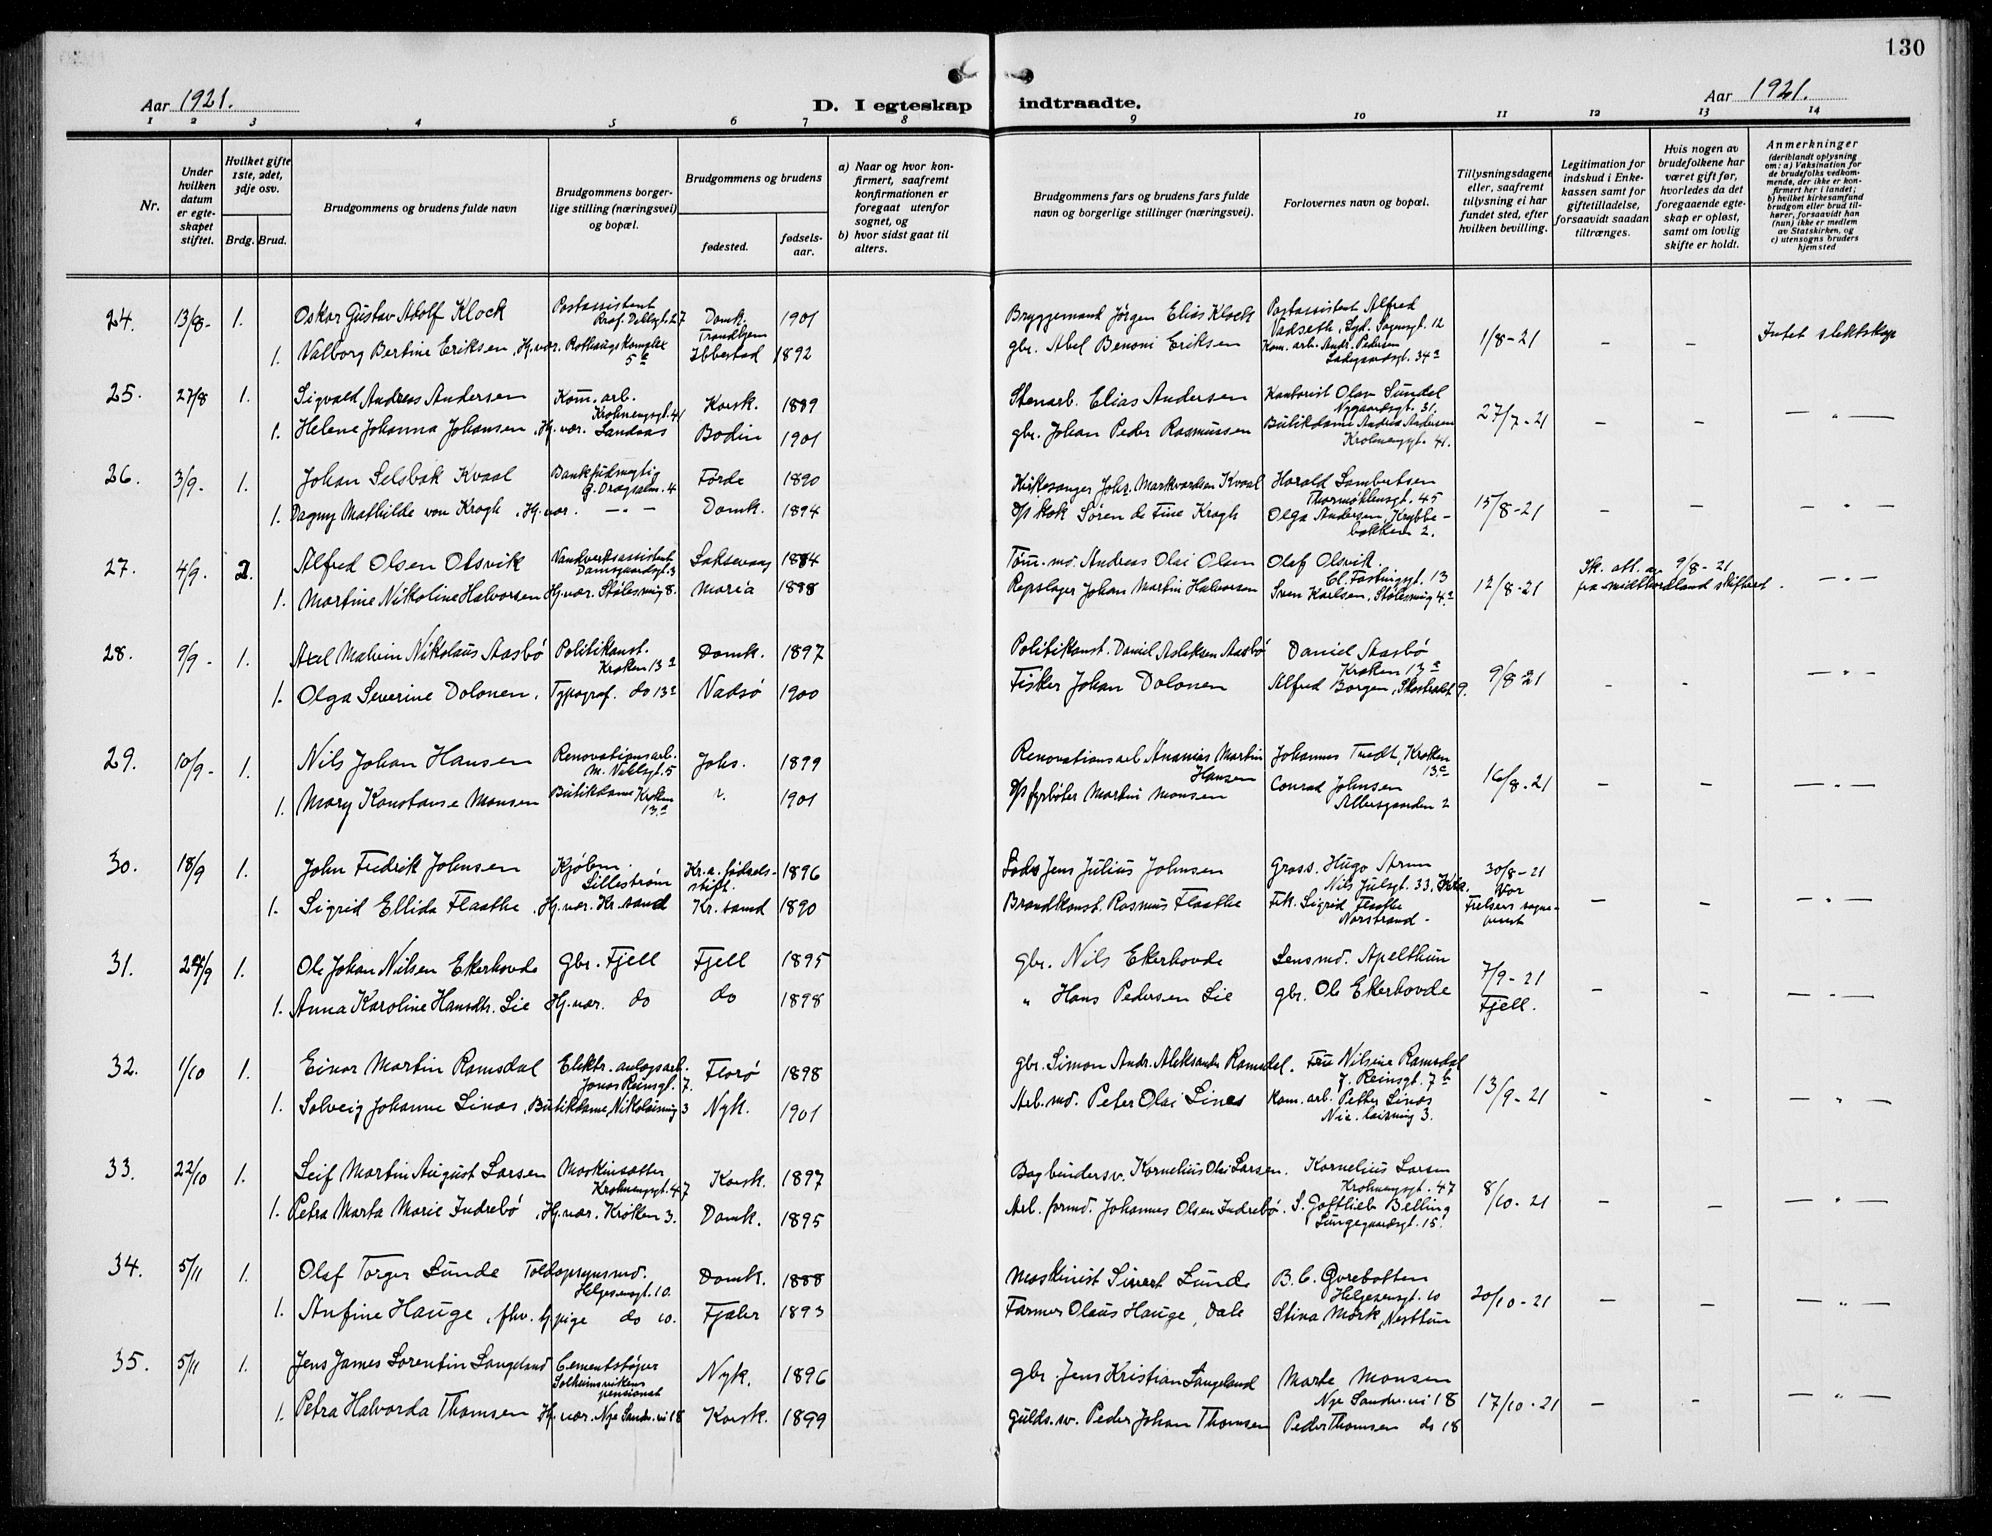 130
Aar 1921.
D. I egteskap indtraadte.
Aar 1921.
1 2 3 4 5 6 7 8 9 10 11 12 13 14
Nr.
Under hvilken datum er egteskapet stiftet.
Hvilket gifte 1ste, 2det, 3dje osv.
Brdg. Brud.
Brudgommens og brudens fulde navn
Brudgommens borgerlige stilling (næringsvei) og bopæl.
Brudgommens og brudens
fødested.
fødselsaar.
a) Naar og hvor konfirmert, saafremt konfirmationen er foregaat utenfor sognet, og
b) hvor sidst gaat til alters.
Brudgommens fars og brudens fars fulde navn og borgerlige stillinger (næringsvei).
Forlovernes navn og bopæl.
Tillysningsdagene eller, saafremt tillysning ei har fundet sted, efter hvilken bevilling.
Legitimation for indskud i Enkekassen samt for giftetilladelse, forsaavidt saadan tiltrænges.
Hvis nogen av brudefolkene har været gift før, hvorledes da det foregaaende egteskap er opløst, samt om lovlig skifte er holdt.
Anmerkninger
(deriblandt oplysning om: a) Vaksination for de brudefolks vedkommende, der ikke er konfirmert her i landet; b) hvilket kirkesamfund brudgom eller brud tilhører, forsaavidt han (hun) ikke er medlem av Statskirken, og c) utensogns bruders hjemsted
24. 13/8- 1. Oskar Gustav Adolf Klock Postassistent Domk. 1901 Bryggemand Jørgen Elias Klock Postassistent Alfred
1. Valborg Bertine Eriksen, Hj. vær. Rothaugskomplex 5c Trondhjem Ibbestad 1892 gbr. Abel Benoni Eriksen Kom. arb. Andr. Pedersen Ladegaardsgt. 34a 1/8-21 - - Intet slektskap
25. 27/8 1. Sigvald Andreas Andersen Kom. arb. Krohnengsgt. 41 Korsk. 1889 Stenarb. Elias Andersen Kontorist Olav Sundal Nygaardsgt. 31.
1. Helene Johanna Johansen, Hj. vær. Landaas Bodin 1901 gbr. Johan Peder Rasmussen Butikdame Andrea Andersen Krohnengsgt. 41. 27/7-21 - - - " -
26. 3/9- 1. Johan Selsbak Kvaal Bankfuldmægtig Førde 1890 Kirkesanger Johs. Markvardsen Kvaal Harald Lambertsen Thormøhlensgt. 45
1. Dagny Mathilde von Krogh, Hj. vær. - " - Domk. 1894 Søren de Fine Krogh Olga Andersen, Krybbebakken 2. 15/8-21 - - - " -
27. 4/9. 2. Alfred Olsen Olsvik Damsgaardsgt. 3 Laksevaag 1884 Tøm. md. Andreas Olai Olsen Olaf Olsvik. Cl. Fastingsgt. 13
1. Martine Nikoline Halvorsen Hj. vær. Stølesmug 8. Maria 1888 Repslager Johan Martin Halvorsen Sven Karlsen, Stølesmug 4a 12/8-21 Sk. att. av 9/8-21 fra Midthordland skifteret. - " -
28. 9/9- 1. Axel Malvin Nikolaus Aasbø Politikonst. Kroken 13a Domk. 1897 Politikonst. Daniel Asleksen Aasbø Daniel Aasbø Kroken 13a
1. Olga Severine Dolonen, Typograf. do 13a Vadsø 1900 Fisker Johan Dolonen Alfred Borgen, 9. 9/8-21 - - - " -
29. 10/9- 1. Nils Johan Hansen Renovationsarb. Johs. 1899 Renovationsarb Ananias Martin Hansen Johannes Tredt, Kroken 13a
1. Mary Konstanse Monsen Butikdame Kroken 13a " 1901 Fyrbøter Martin Monsen Conrad Johnsen 2 16/8-21 - - - " -
30. 18/9 1. John Fredrik Johnsen Kjøbm. Lillestrøm Kr.a. fødselsstift. 1896 Lods Jens Julius Johnsen Gross. Hugo Nils Julsgt. 33, Kra. 30/8-21
1. Sigrid Ellida Flaathe, Hj. vær. Kr. sand Kr. sand 1890 Brandkonst. Rasmus Flaathe Frk. Sigrid Flaathe Norstrand - Vor Frelsers sogn - - - " -
31. 24/9 1. Ole Johan Nilsen Ekerhovde gbr. Fjell Fjell 1895 gbr. Nils Ekerhovde Lensmd. Apelthun
1. Anna Karoline Hansdtr. Lie Hj. vær. do do 1898 " Hans Pedersen Lie gbr. Ole Ekerhovde 7/9-21 Fjell. - - - " -
32. 1/10 1. Einar Martin Ramsdal Elektr. anlægsarb. Jonas Reinsgt. 7. Florø 1898 gbr. Simon Andr. Aleksander Ramsdal. Fru Nilsine Ramsdal J. Reinsgt. 7b
1. Solveig Johanne Linæs, Butikdame, Nikolaismug 3 Nyk. 1901 Arb. md. Peter Olai Linæs Kom. arb. Petter Linæs Nic. laismug 3. 13/9-21 - - - " -
33. 22/10 1. Leif Martin August Larsen Maskinsætter Krohnengsgt. 47 Korsk. 1897 Bogbindersv. Kornelius Olai Larsen. Kornelius Larsen Krohnengsgt. 47
1. Petra Marta Marie Indrebø, Hj. vær. Krøken 3. Domk. 1895 Arb. formd. Johannes Olsen Indrebø. S. Gottlieb Belling Lungegaardsgt. 15. 8/10-21 - - - " -
34. 5/11 1. Olaf Torger Lunde Toldopsynsmd. Helgesensgt. 10. Domk. 1888 Maskinist Sivert Lunde B. C. Helgesensgt. 10
1. Anfine Hauge, fhv. tj. pige do 10. Fjaler 1893 Farmer Olaus Hauge, Dale Stina Mørk, Nesttun 20/10-21 - - - " -
35. 5/11 1. Jens James Lorentin Langeland Cementstøper Solheimsvikens pensionat Nyk. 1896 gbr. Jens Kristian Langeland Marte Monsen Nye Sandv. vei 18
1. Petra Halvorda Thomsen Hj. vær. Nye Sandv. vei 18 Korsk. 1899 Gulds. sv. Peder Johan Thomsen Peder Thomsen do 18 17/10-21 - - - " -